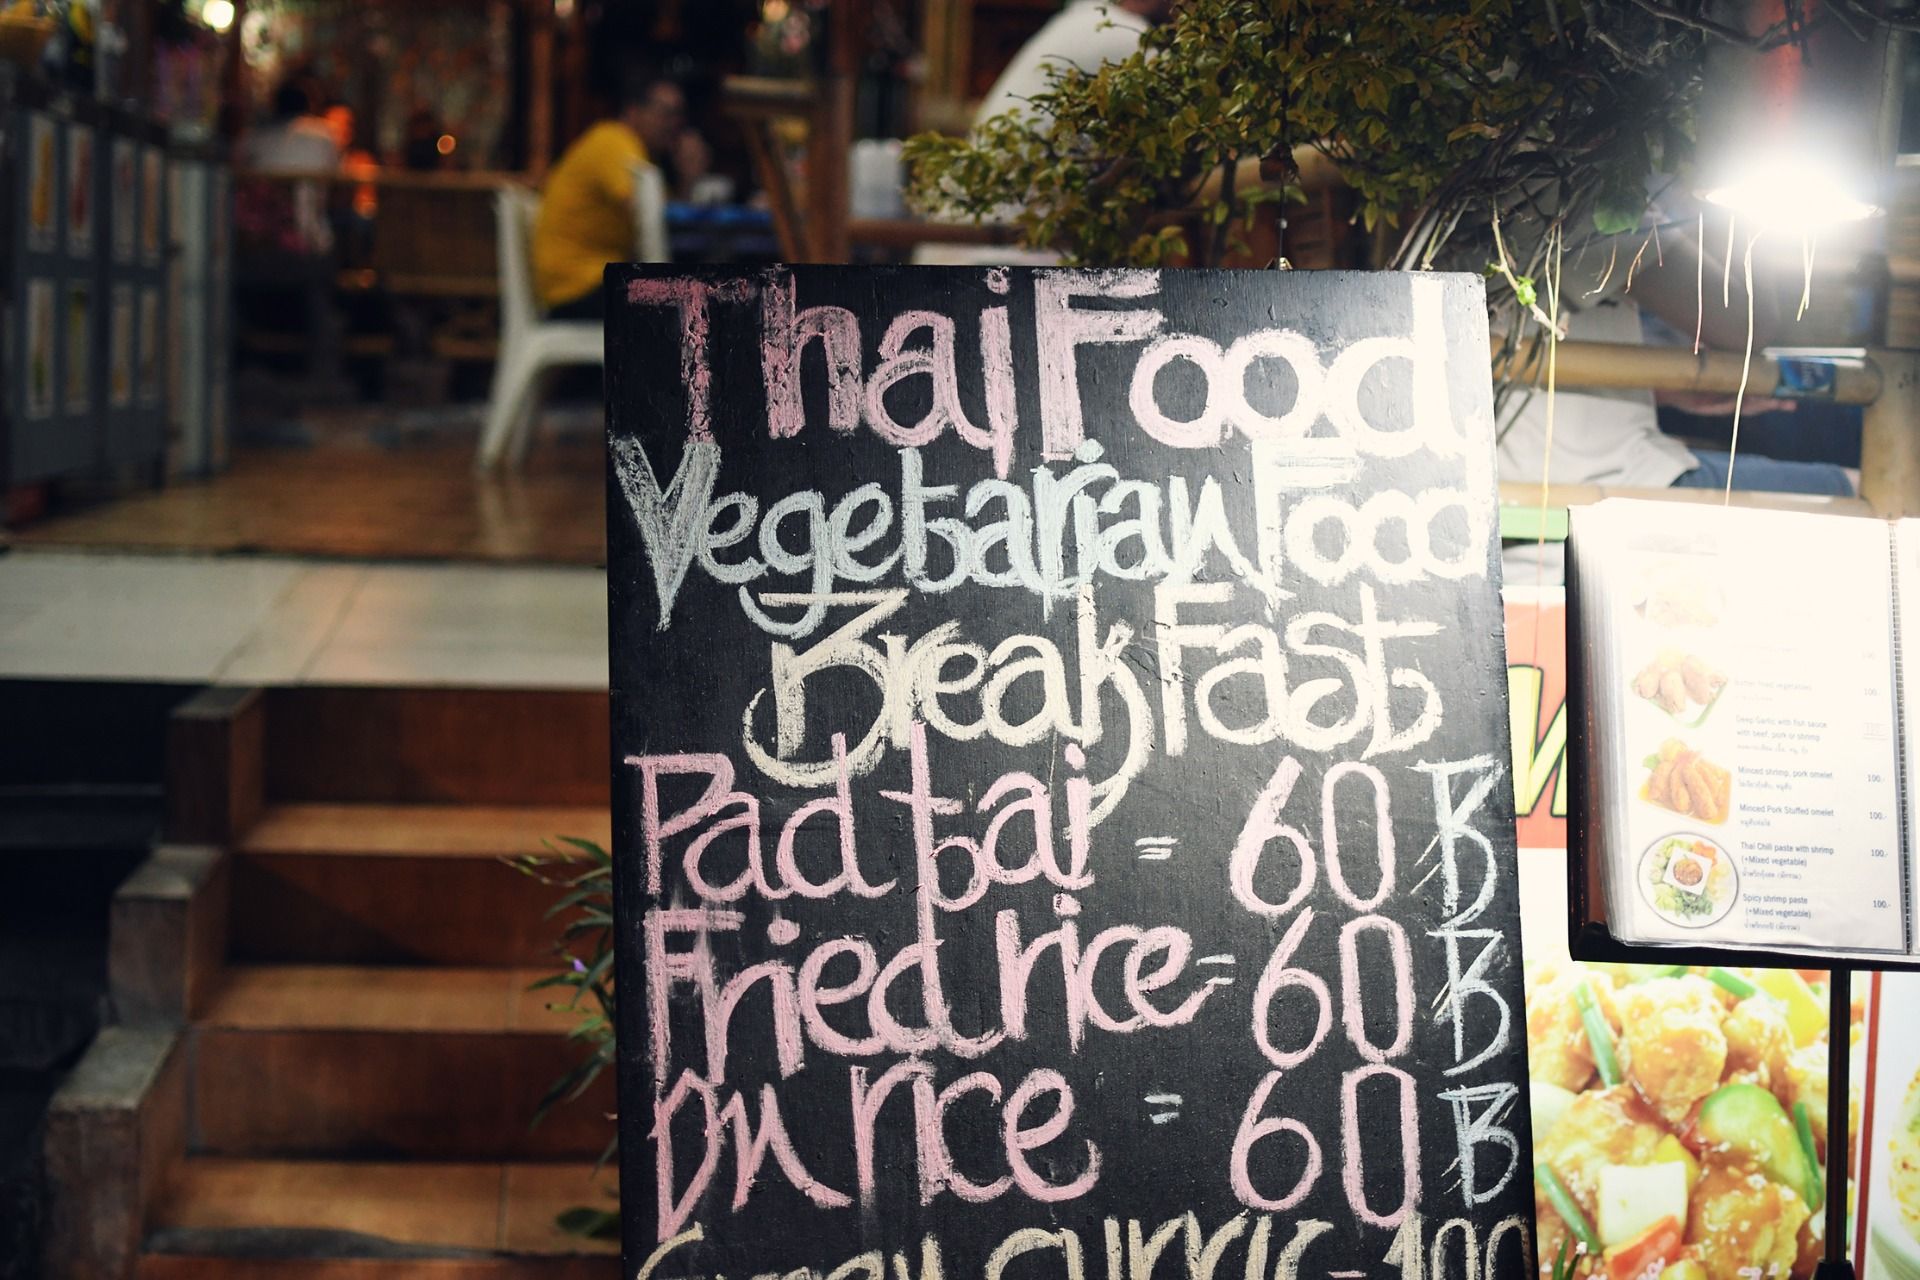 Thai Food
Vegetarian Food
BreakFast
Pad tai = 60 B
Fried rice = 60 B
On rice = 60 B
100
100.-
Deep Garlic with fish sauce
with beef, pork or shrimp
Minced shrimp, pork omelet 100.-
Minced Pork Stuffed omelet 100.-
Thai Chili paste with shrimp 100.-
(+Mixed vegetable)
Spicy shrimp paste 100.-
(+Mixed vegetable)